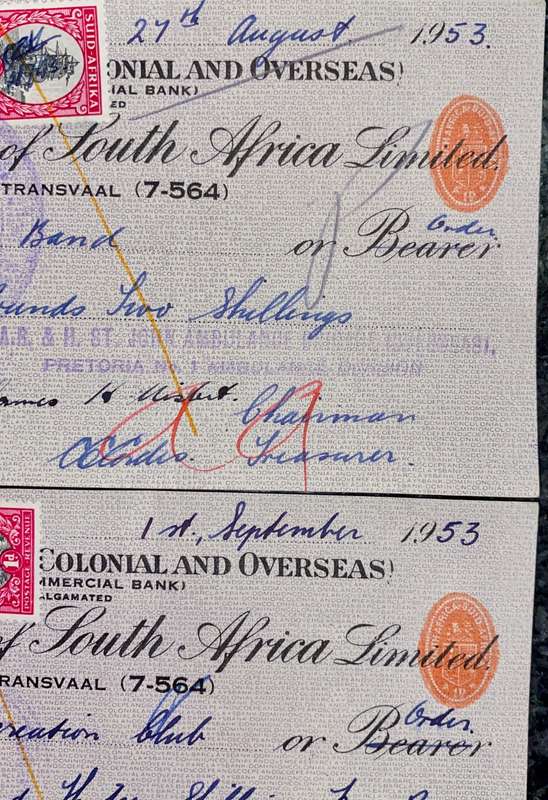 27th August 1953.
SUID-AFRIKA
ONIAL AND OVERSEAS)
IAL BANK)
ED
of South Africa Limited.
TRANSVAAL (7-564)
Band or Bearer
Order
ounds Two Shillings
& H. ST. JOHN AMBULANCE
PRETORIA No. 1 AMBULANCE DIVISION
James H
Chairman
Treasurer.
1st, September 1953
1d
POSTAGE-REVENUE
COLONIAL AND OVERSEAS)
MMERCIAL BANK)
LGAMATED
of South Africa Limited.
RANSVAAL (7-564)
Order.
Club or Bearer